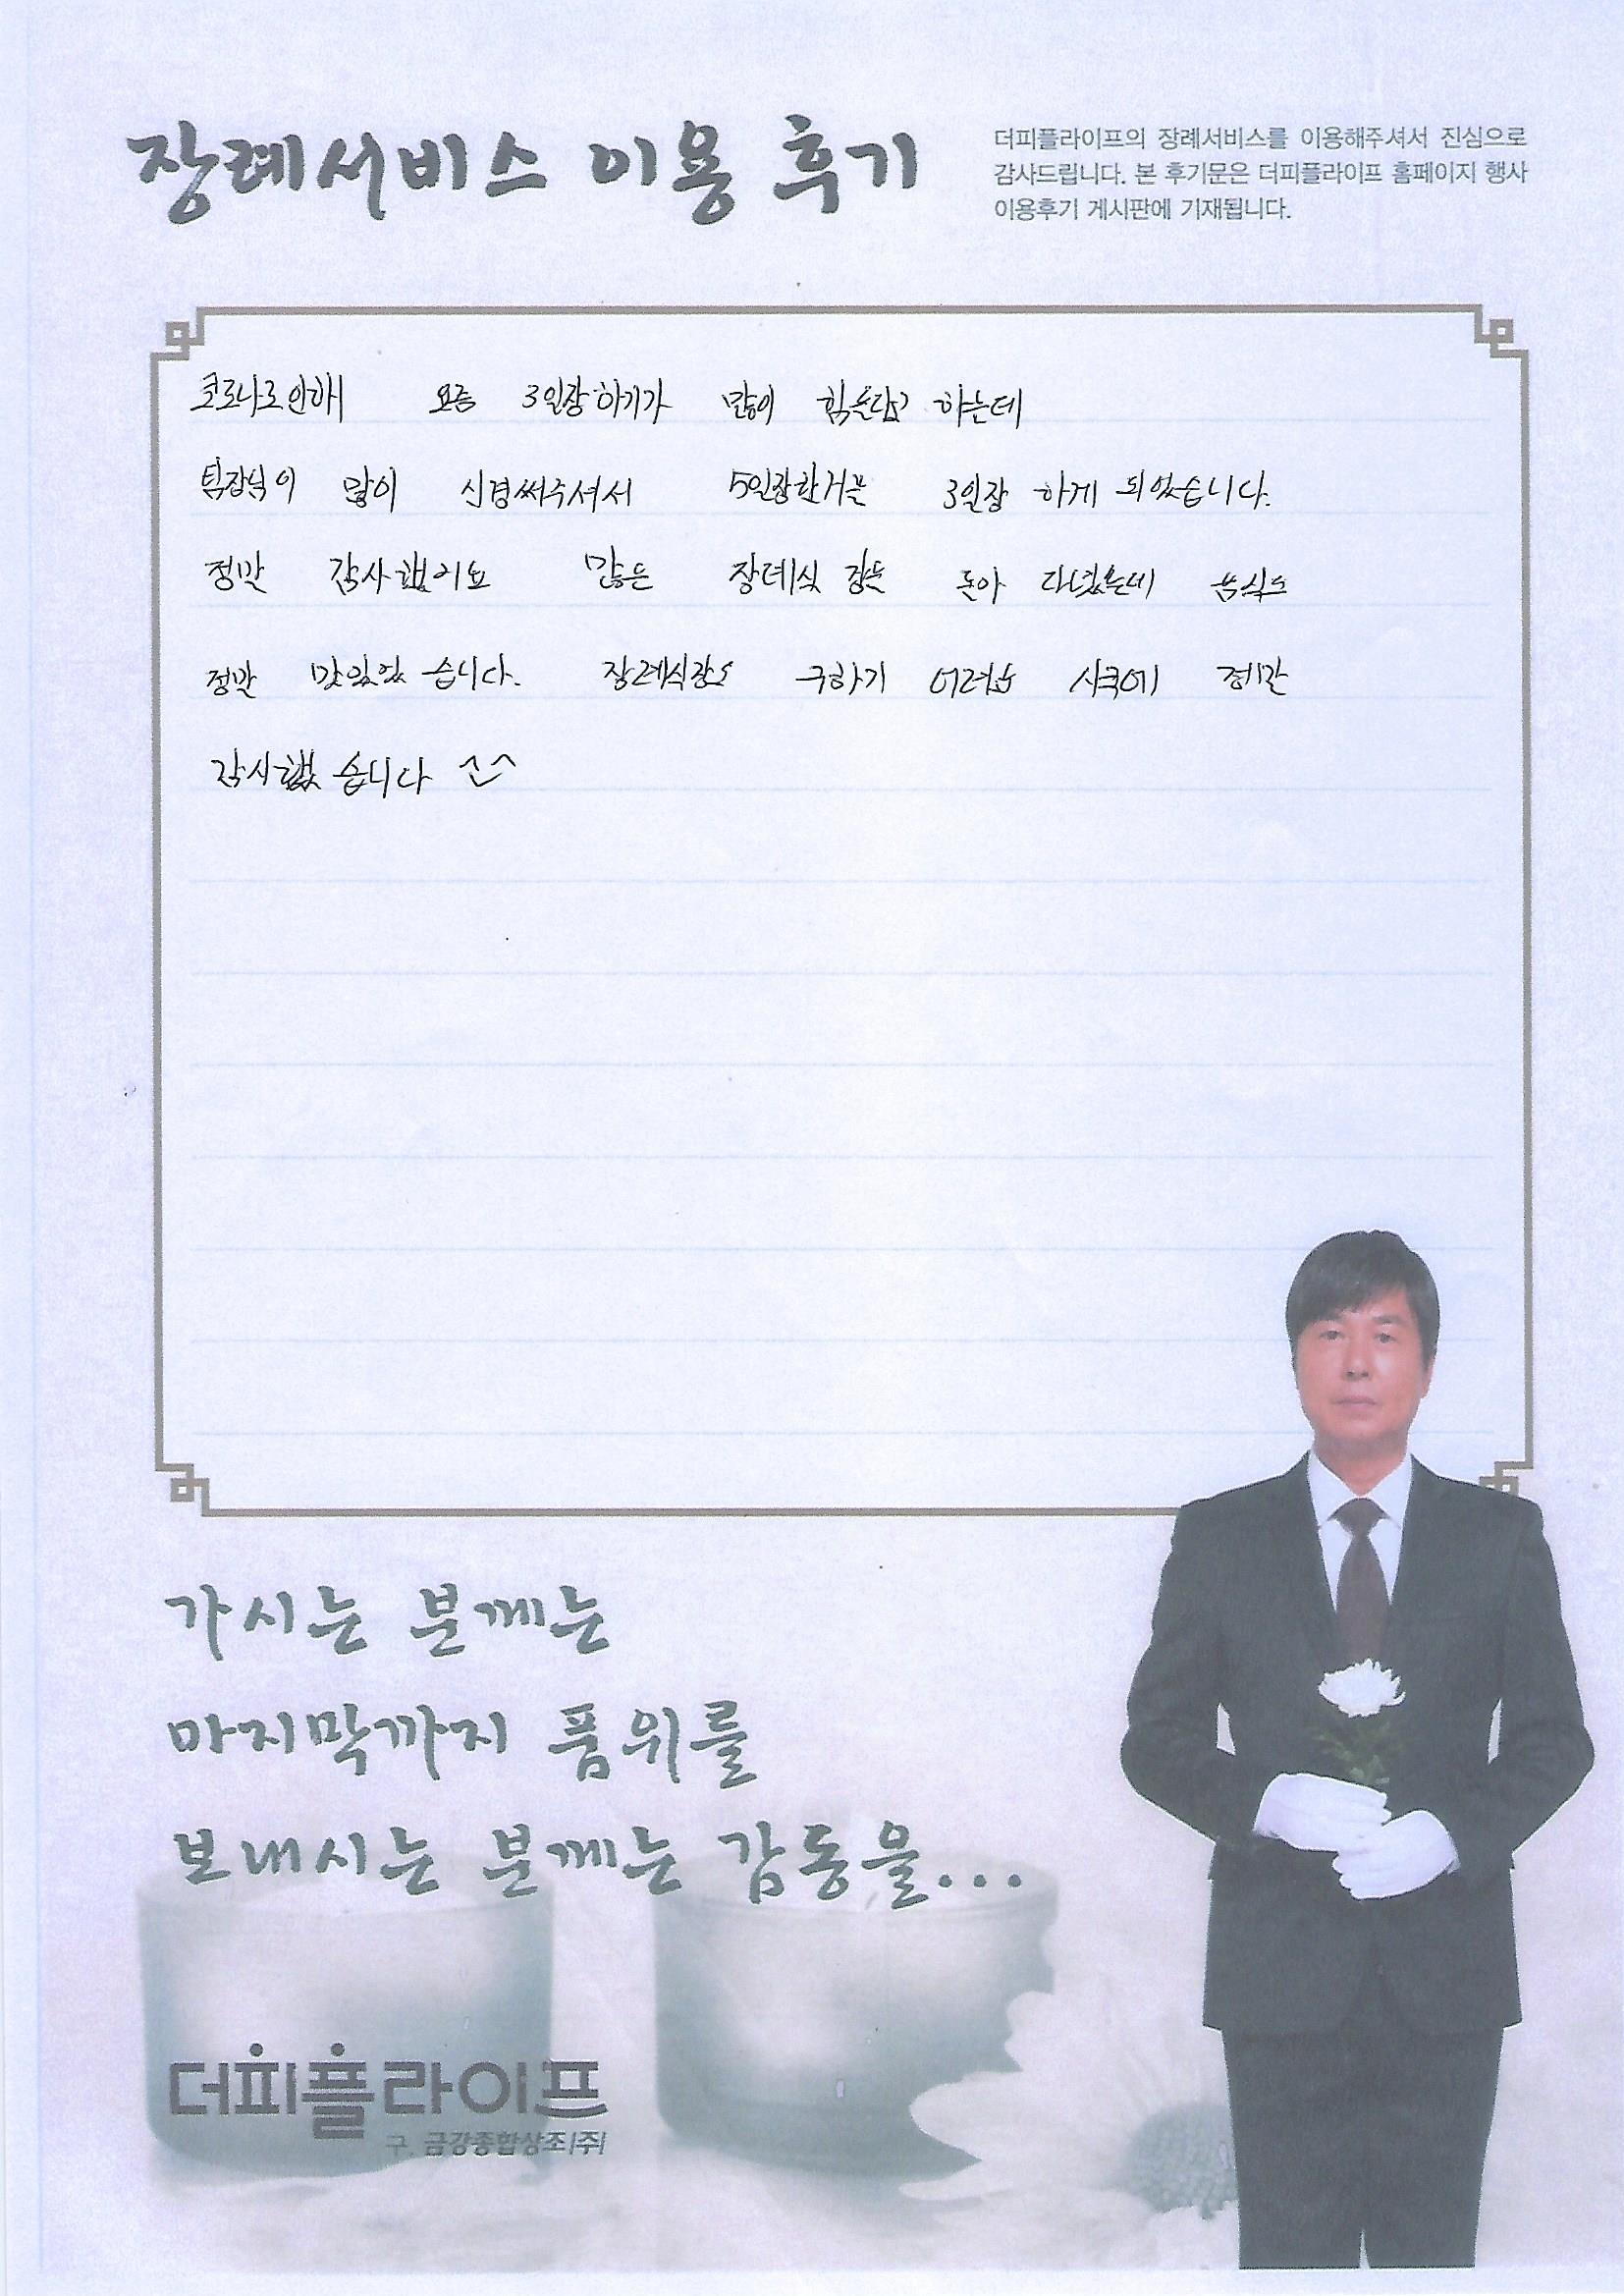 장례서비스 이용 후기
더피플라이프의 장례서비스를 이용해주셔서 진심으로
감사드립니다. 본 후기문은 더피플라이프 홈페이지 행사
이용후기 게시판에 기재됩니다.
코로나로인해 요즘 3일장하기가 많이 힘든다고 하는데
팀장님이 많이 신경써주셔서 5일장한거를 3일장 하게 되었습니다.
정말 감사했어요 많은 장례식장을 돌아 다녔는데 음식도
정말 맛있었습니다. 장례식장도 구하기 어려운 시국에 정말
감사했습니다 ^_^
가시는 분께는
마지막까지 품위를
보내시는 분께는 감동을...
더피플라이프
구. 금강종합상조(주)